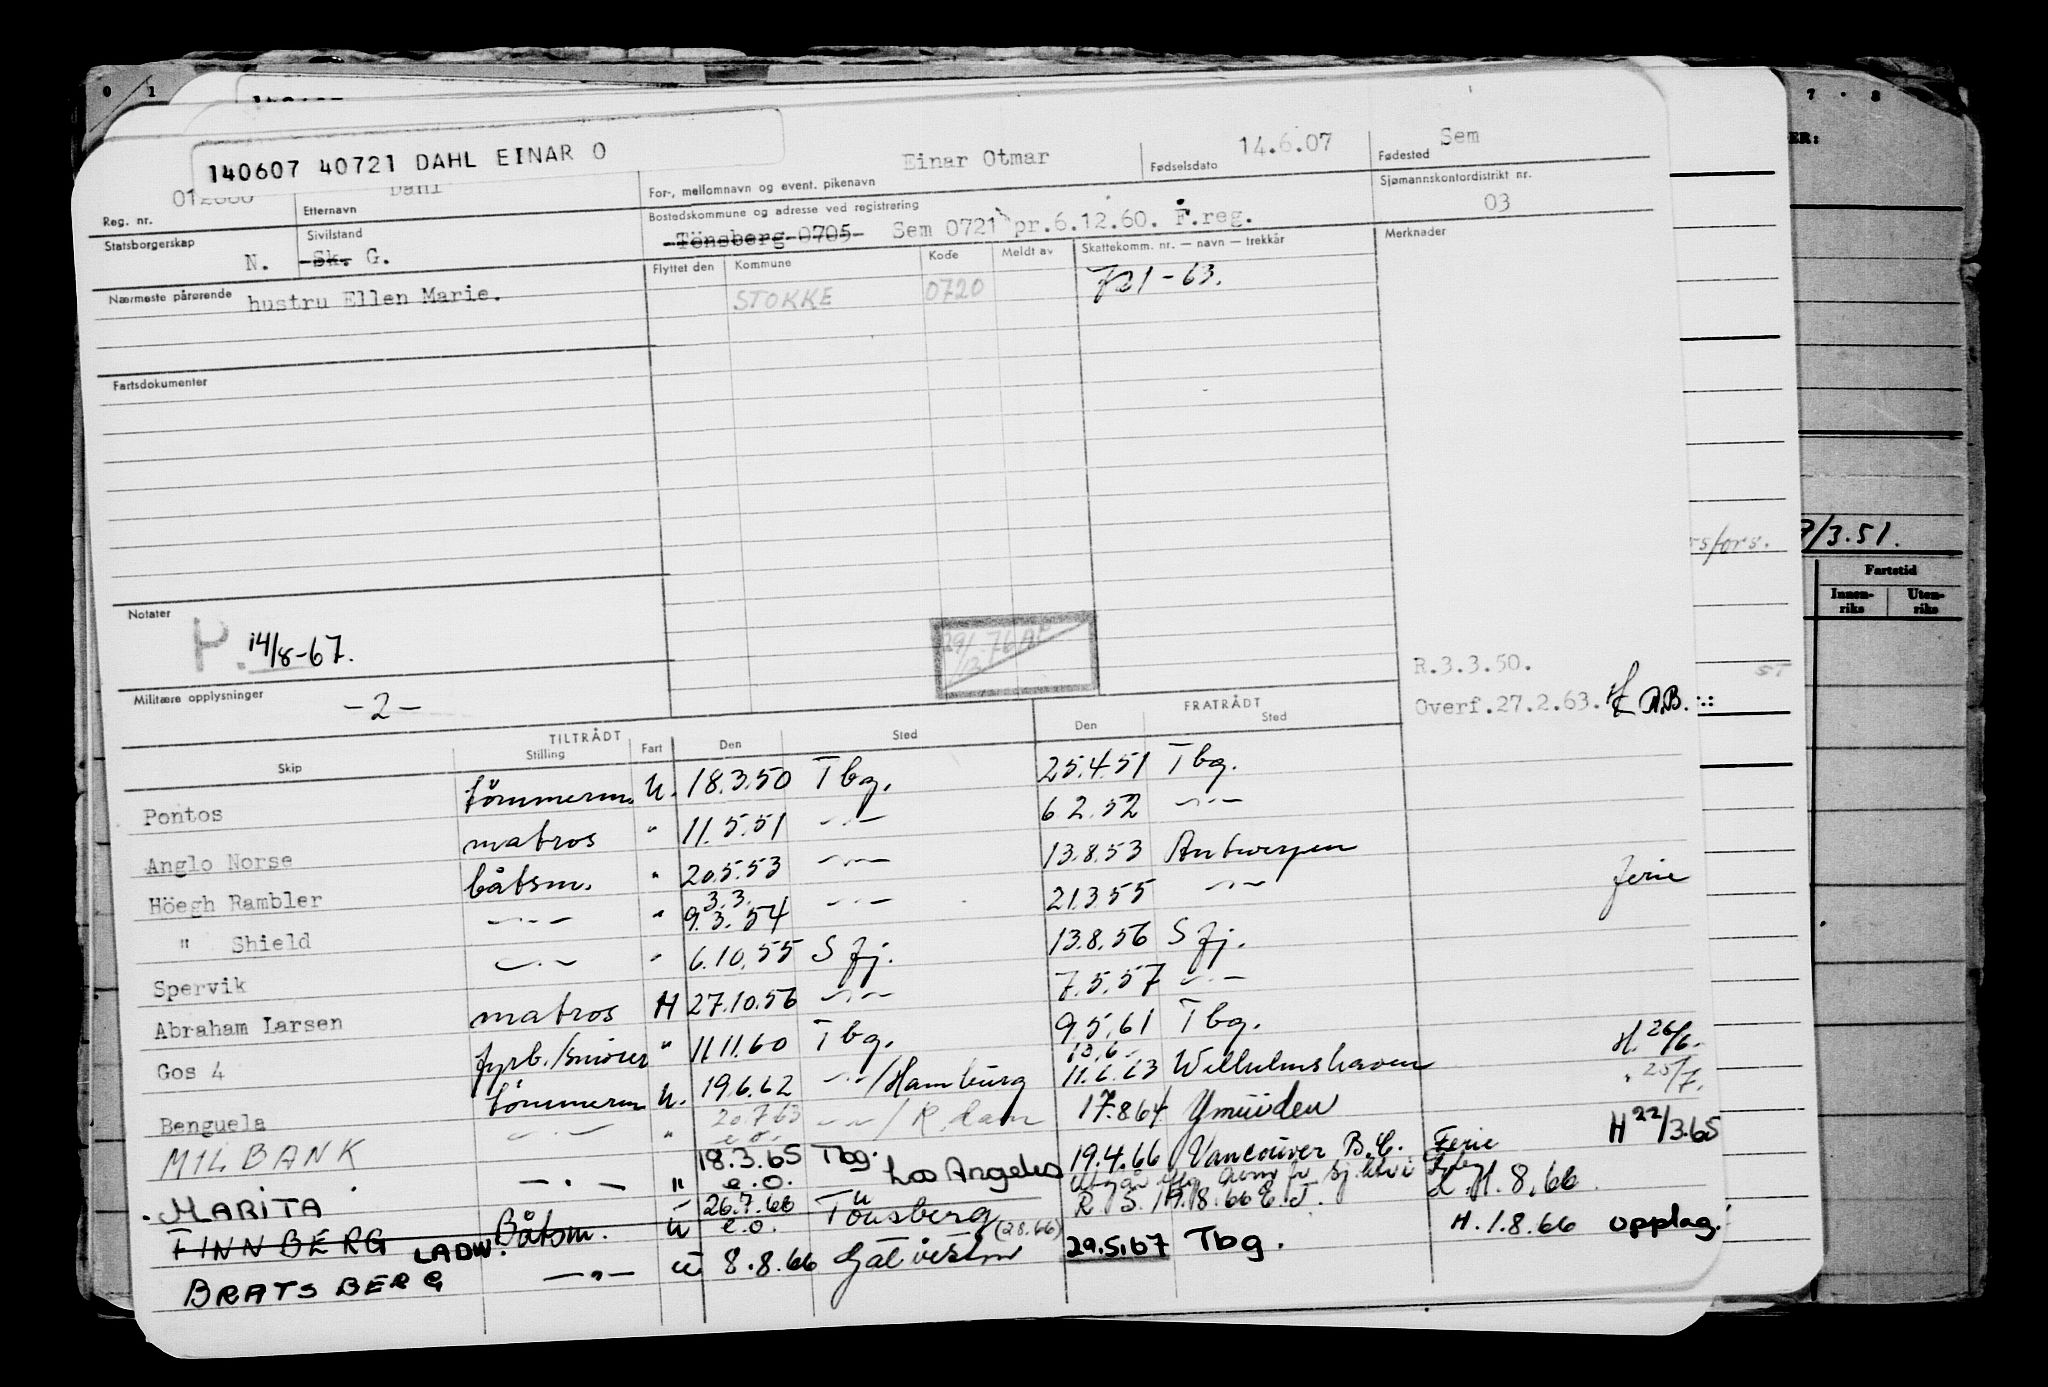 140607 40721 DAHL EINAR O
Einar Otmar 14.6.07 Sem
Reg. nr. Etternavn Dahl For-, mellomnavn og event. pikenavn Fødselsdato Fødested
Statsborgerskap N. Sivilstand Sk. G. Bostedskommune og adresse ved registrering Tönsberg 0705 Sem 0721 pr.6.12.60. F.reg. Sjømannskontordistrikt nr. 03
Nærmeste pårørende hustru Ellen Marie. Flyttet den Kommune Kode Meldt av Skattekomm. nr. — navn — trekkår Merknader
STOKKE 0720 721-63.
Fartsdokumenter
3/3.51.
Fartstid
Innen-riks Uten-riks
Notater
P. 14/8-67.
R.3.3.50.
Militære opplysninger -2-
Overf.27.2.63.
TILTRÅDT FRATRÅDT
Skip Stilling Fart Den Sted Den Sted
Pontos tömmerm. U. 18.3.50 Tbg. 25.4.51 Tbg.
Anglo Norse matros " 11.5.51 —"— 6.2.52 —"—
Höegh Rambler båtsm. " 20.5.53 —"— 13.8.53 Antwerpen
" Shield —"— " 3.3. 9.3.54 —"— 21.3.55 —"— ferie
Spervik —"— " 6.10.55 S fj. 13.8.56 S fj.
Abraham Larsen matros H 27.10.56 —"— 7.5.57 —"—
Gos 4 fyrb./smörer " 11.11.60 Tbg. 9.5.61 Tbg.
Benguela tömmerm U. 19.6.62 —"—/Hamburg 11.6.63 Wilhelmshaven H. 26/6.
MILBANK —"— " 20.7.63 e.o. —"—/R.dam 17.8.64 Ymuiden " 25/7.
MARITA —"— " 18.3.65 e.o. Tbg. Los Angeles 19.4.66 Vancouver B.C. Ferie H 22/3.65
FINNBERG LADW. Båtsm. U 26.7.66 e.o. Tönsberg (2.8.66)
BRATSBERG —"— U 8.8.66 29.5.67 Tbg. H.1.8.66 opplag.